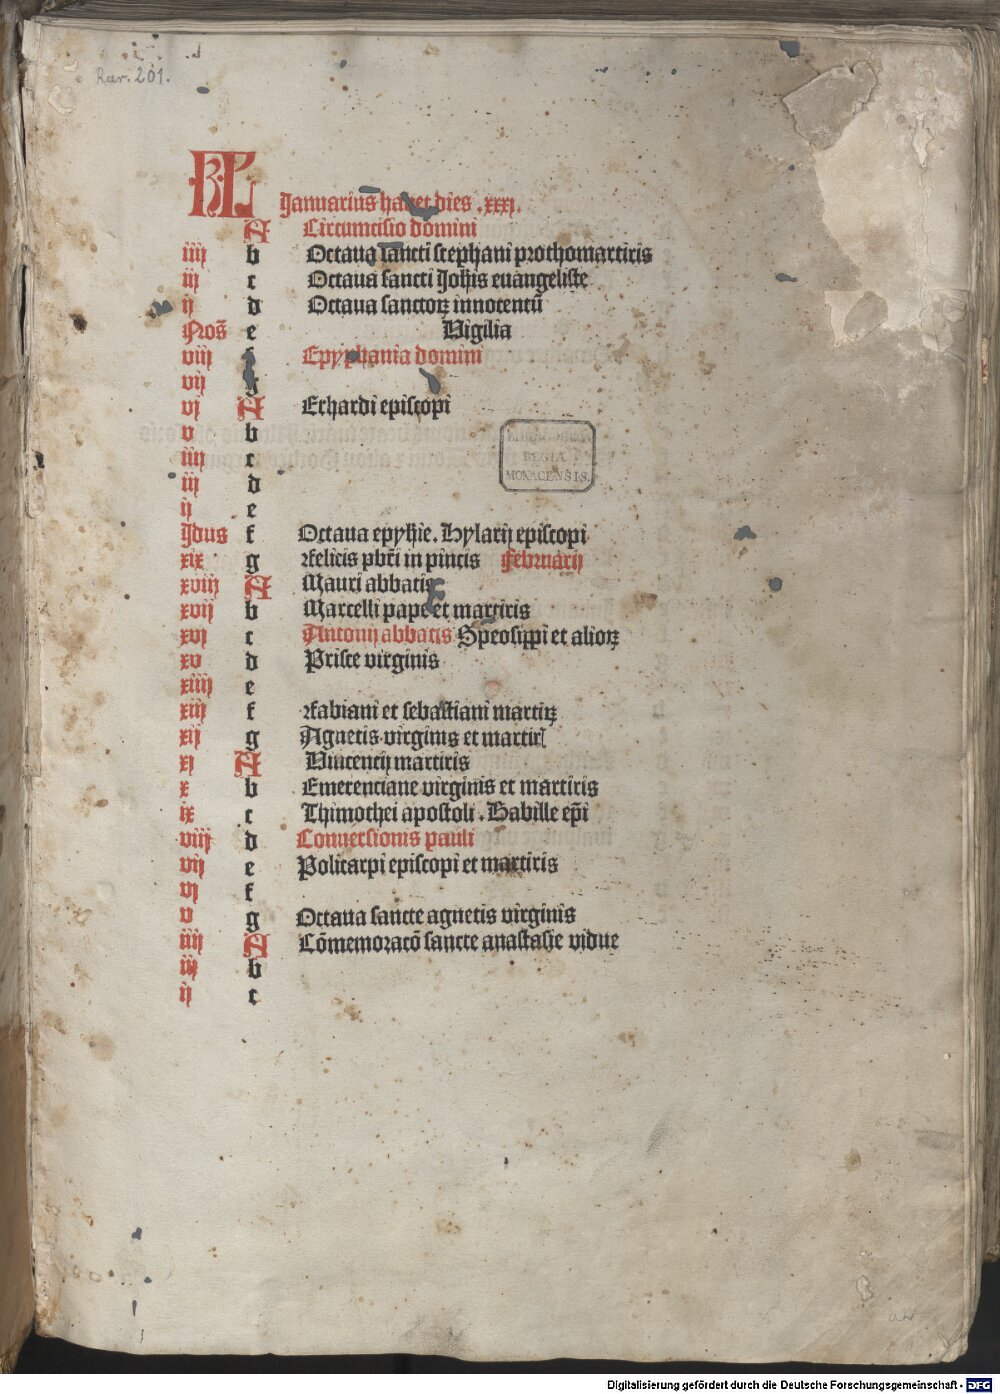 Rar. 201.
KL
Januarius habet dies .xxxj.
A Circumcisio domini
iiij b Octaua sancti stephani prothomartiris
iij c Octaua sancti Joh̄is euangeliste
ij d Octaua sanctoꝝ innocentū
Nos̄ e Vigilia
viij f Epyphania domini
vij g
vj A Erhardi episcopi
v b
iiij c
iij d
ij e
Jdus f Octaua epyh̄ie. Hylarij episcopi
xix g Felicis pbr̄i in pincis Februarij
xviij A Mauri abbatis
xvij b Marcelli pape et martiris
xvj c Antonij abbatis Speosippi et alioꝝ
xv d Prisce virginis
xiiij e
xiij f Fabiani et sebastiani martiꝝ
xij g Agnetis virginis et martir̄
xj A Vincencij martiris
x b Emerenciane virginis et martiris
ix c Thimothei apostoli. Babille ep̄i
viij d Conuersionis pauli
vij e Policarpi episcopi et martiris
vj f
v g Octaua sancte agnetis virginis
iiij A Cōmemoracō sancte anastasie vidue
iij b
ij c
REGIA
MONACENSIS.
Digitalisierung gefördert durch die Deutsche Forschungsgemeinschaft - DFG